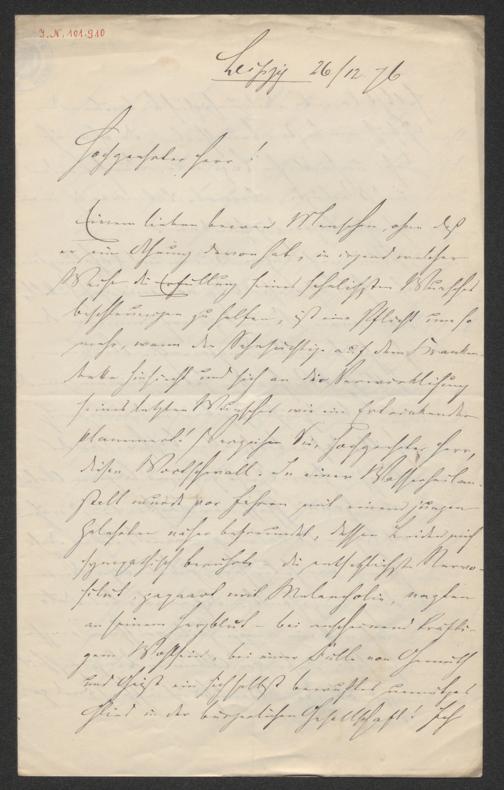 J.N. 101.910
Leipzig 26/12 76
Hochgeehrter Herr!
Einem lieben braven Menschen, ohne daß
er eine Ahnung davon hat, in irgend welcher
Weise die Erfüllung seines sehnlichsten Wunsches
beschleunigen zu helfen, ist eine Pflicht umso
mehr, wenn der Sehnsüchtige auf dem Kranken-
bette hinsiecht und sich an die Verwirklichung
seines letzten Wunsches wie ein Ertrinkender
klammert! Verzeihen Sie, hochgeehrter Herr,
diesen Wortschwall. In einer Wasserheilan-
stalt wurde vor Jahren mit einem jungen
Gelehrten näher befreundet, dessen Leiden mich
sympathisch berührte – die entsetzlichste Nervo-
sität, gepaart mit Melancholie, nagten
an seinem Herzblut – bei anscheinend kräfti-
gem Wohlsein, bei einer Fülle von Gemüth
und Geist ein sich selbst bewußtes unnützes
Glied in der bürgerlichen Gesellschaft! Ich